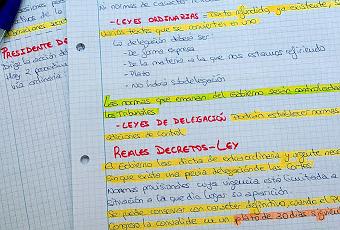 No normas de carácter
- LEYES ORDINARIAS - texto refundido, ya existente,
varios textos que se convierten en uno.
La delegación deberá ser:
- De forma expresa
- De la materia a la que nos estamos refiriendo
- Plazo
- No habrá subdelegación
Las normas que emanan del gobierno serán controladas
los tribunales
- LEYES DE DELEGACIÓN podrán establecer normas
adiciones de control.
REALES DECRETOS-LEY
El Gobierno las dicta de extraordinaria y urgente nece
sin que exista una previa delegación de las Cortes.
Normas provisionales cuya vigencia está limitada a
situación a la que dio lugar su aparición.
Se puede conservar con carácter definitivo, cuando el
Congreso la convalide en un plazo de 30 días siguien
PRESIDENTE DE
Dirige la acción de
Hay 2
vía ordinaria